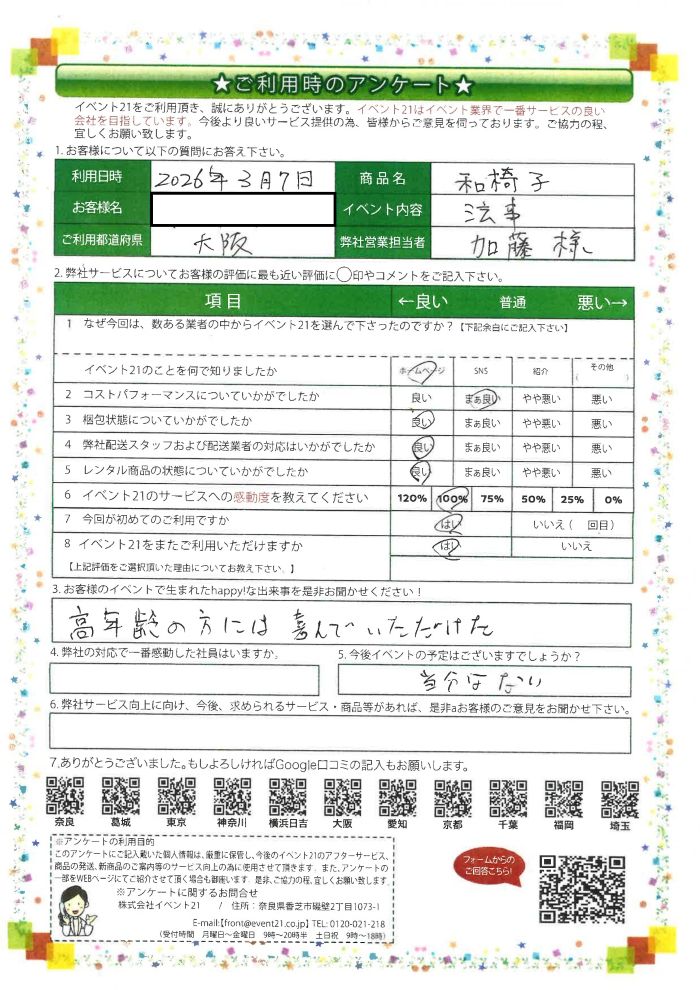 ★ご利用時のアンケート★
イベント21をご利用頂き、誠にありがとうございます。イベント21はイベント業界で一番サービスの良い
会社を目指しています。今後より良いサービス提供の為、皆様からご意見を伺っております。ご協力の程、
宜しくお願い致します。
1.お客様について以下の質問にお答え下さい。
利用日時 2026年3月7日 商品名 和椅子
お客様名 イベント内容 法事
ご利用都道府県 大阪 弊社営業担当者 加藤様
2.弊社サービスについてお客様の評価に最も近い評価に◯印やコメントをご記入下さい。
項目 ←良い 普通 悪い→
1 なぜ今回は、数ある業者の中からイベント21を選んで下さったのですか？【下記余白にご記入下さい】
イベント21のことを何で知りましたか ホームページ SNS 紹介 その他( )
2 コストパフォーマンスについていかがでしたか 良い まぁ良い やや悪い 悪い
3 梱包状態についていかがでしたか 良い まぁ良い やや悪い 悪い
4 弊社配送スタッフおよび配送業者の対応はいかがでしたか 良い まぁ良い やや悪い 悪い
5 レンタル商品の状態についていかがでしたか 良い まぁ良い やや悪い 悪い
6 イベント21のサービスへの感動度を教えてください 120% 100% 75% 50% 25% 0%
7 今回が初めてのご利用ですか はい いいえ( 回目)
8 イベント21をまたご利用いただけますか はい いいえ
【上記評価をご選択頂いた理由についてお教え下さい。】
3.お客様のイベントで生まれたhappy!な出来事を是非お聞かせください！
高年齢の方には喜んでいただけた
4.弊社の対応で一番感動した社員はいますか。 5.今後イベントの予定はございますでしょうか？
当分はない
6.弊社サービス向上に向け、今後、求められるサービス・商品等があれば、是非aお客様のご意見をお聞かせ下さい。
7.ありがとうございました。もしよろしければGoogle口コミの記入もお願いします。
奈良 葛城 東京 神奈川 横浜日吉 大阪 愛知 京都 千葉 福岡 埼玉
※アンケートの利用目的
このアンケートにご記入戴いた個人情報は、厳重に保管し、今後のイベント21のアフターサービス、
商品の発送、新商品のご案内等のサービス向上の為に使用させて頂きます。また、アンケートの
一部をWEBページにてご紹介させて頂く場合も御座います。是非、ご協力の程、宜しくお願い致します。
※アンケートに関するお問合せ
株式会社イベント21 / 住所：奈良県香芝市磯壁2丁目1073-1
E-mail:【front@event21.co.jp】 TEL: 0120-021-218
(受付時間 月曜日～金曜日 9時～20時半 土日祝 9時～18時)
フォームからの
ご回答こちら！